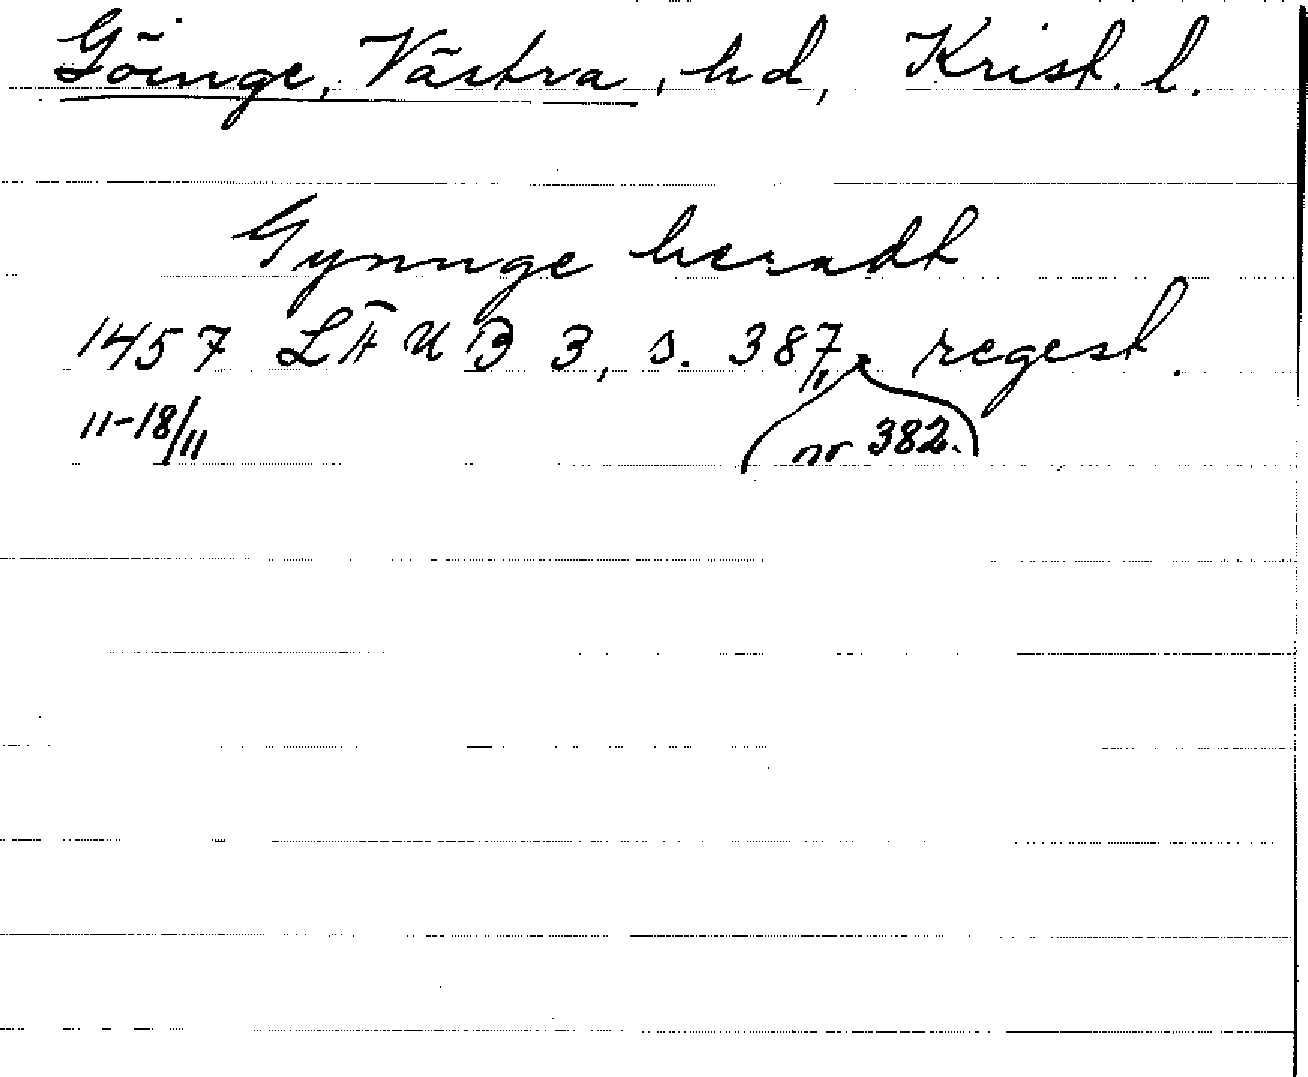 Göinge, Västra, hd, Krist. l.
Gynnge heradt
1457 LÄUB 3, s. 387, regest.
11-18/11 (nr 382.)